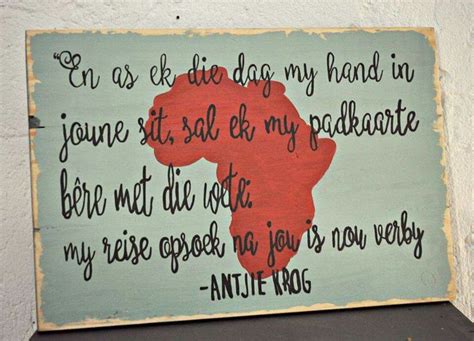 "En as ek die dag my hand in
joune sit, sal ek my padkaarte
bêre met die wete:
my reise opsoek na jou is nou verby
-ANTJIE KROG